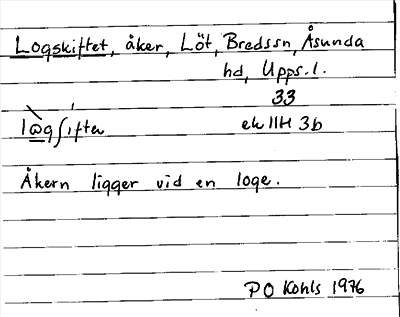 Logskiftet, åker, Löt, Bredssn, Åsunda
hd, Upps. l.
33
ek 11H 3b
Åkern ligger vid en loge.
PO Kohls 1976